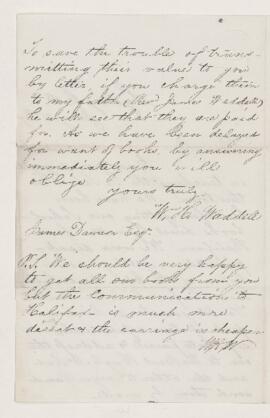 To save the trouble of trans-
mitting their value to you
by letter, if you charge them
to my father (Rev James Waddell)
he will see that they are paid
for. As we have been delayed
for want of books, by answering
immediately you will
oblige
yours truly
W. H. Waddell
James Dawson Esqr
P.S. We should be very happy
to get all our books from you
but the communications to
Halifax is much more
direct & the carriage is cheaper
WHW